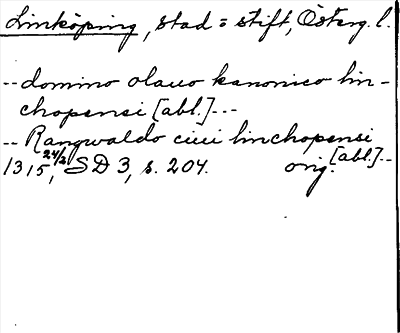 Linköping, stad = stift, Österg. l.
-- domino olauo kanonico lin-
chopensi [abl.] ---
-- Rangwaldo ciui linchopensi
[abl.] --
1315, 24/2 SD 3, s. 204. orig.